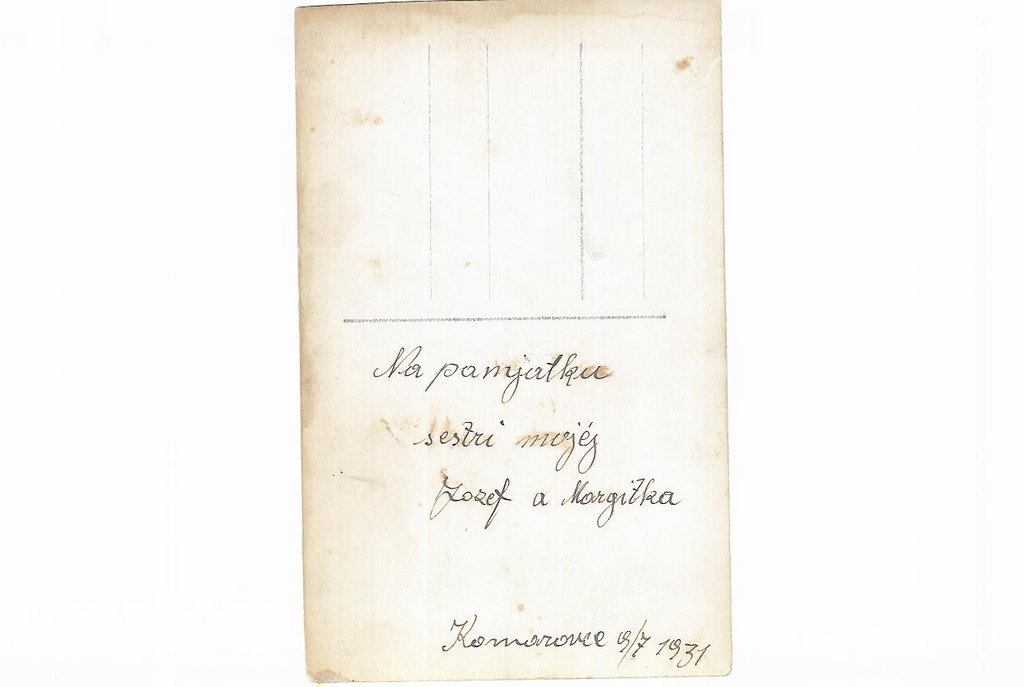 Na pamjatku
sestri mojéj
Jozef a Margitka
Komarovce 9/7 1931